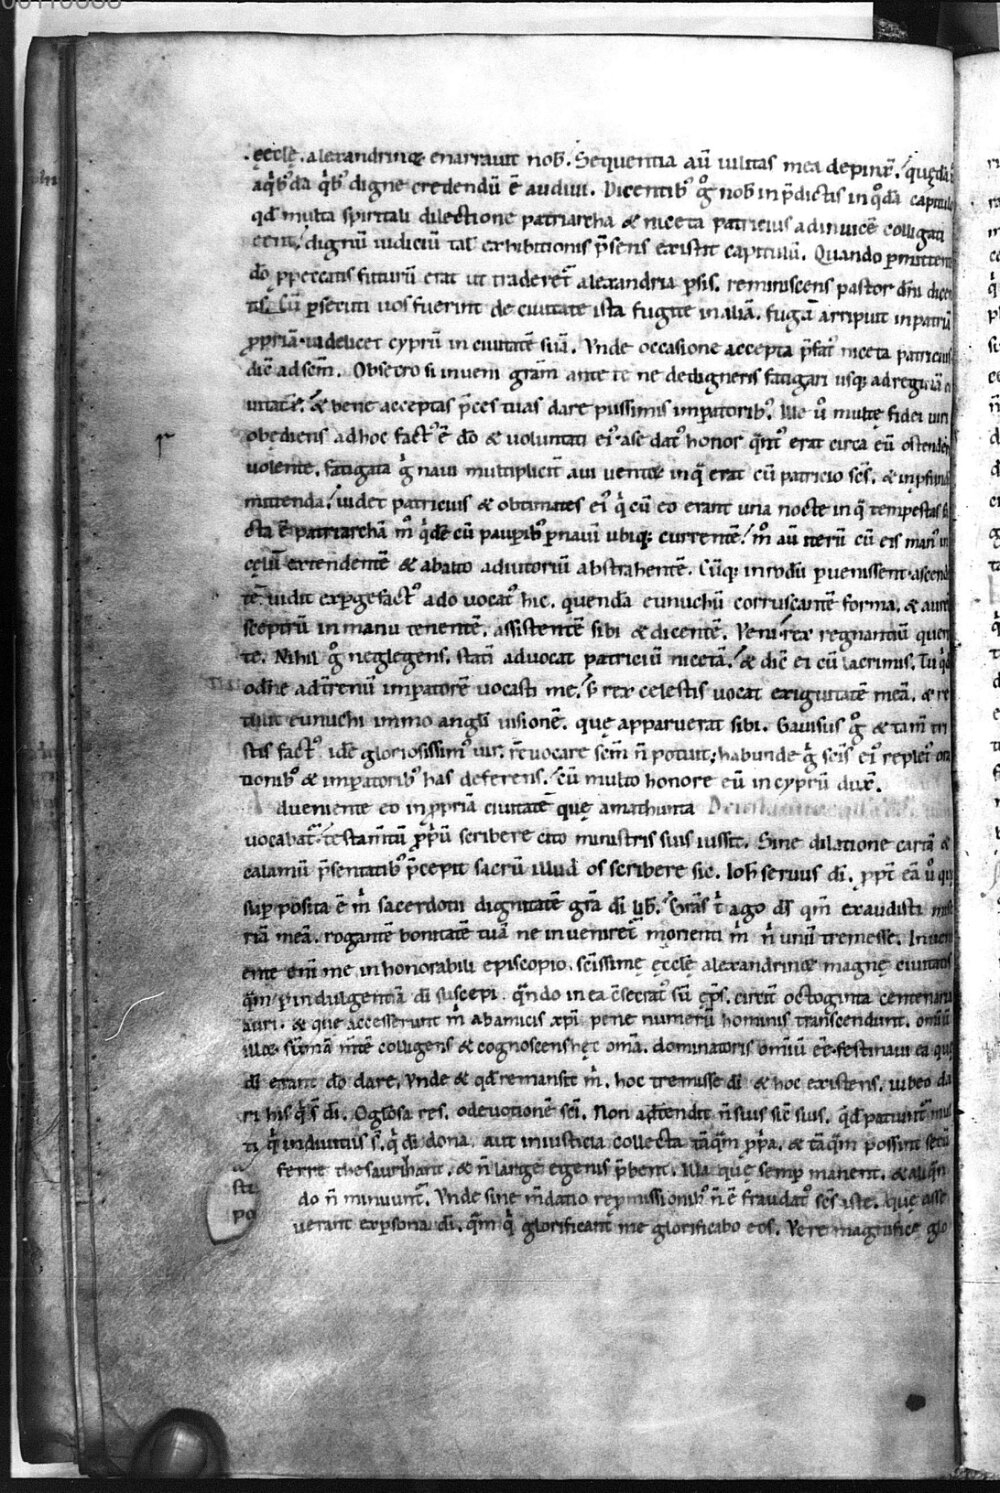 .ęcclę. alexandrinę enarrauit nob̄. Sequentia aū uilitas mea depinx̄. quędā
a q̇b'dā q̇b' digne credendū ē audiui. Dicentib' g̊ nob̄ in p̄dictis in q̊dā capitulo
qđ multa spiritali dilectione patriarcha & niceta patricius adinuicē colligati
eent, dignū iudiciū tał exhibitionis p̄sens existit capitulū. Quando pmittente
dō p peccatis futurū erat ut traderet̄ alexandria psis. reminiscens pastor dn̄i dicen
tis. Cū psecuti uos fuerint de ciuitate ista fugite in aliā. fugā arripuit in patriā
ppriā. uidelicet cyprū in ciuitatē suā. Vnde occasione accepta p̄fat' niceta patricius
dic̄ ad sc̄m. Obsecro si inueni grām ante te ne dedigneris fatigari usq; ad regiā ci
uitatē. & bene acceptas p̄ces tuas dare piissimis impatorib'. Ille u̇ multę fidei uiri
obędiens ad hoc fact' ē dō & uoluntati ei'. a se dat' honor q̄nt' erat circa eū ostendere
uolente. fatigata g̊ naui multipliciť a ui uentoꝝ in q̄ erat cū patricio sc̄s. & in pfundū
mittenda. uidet patricius & obtimates ei' q̇ cū eo erant una nocte in q̄ tempestas fa
cta ē patriarchā m̊ q̇dē cū paupib' p nauī ubiq; currentē. m̊ aū iterū cū eis man' in
cęlū extendentē & ab alto adiutoriū abstrahentē. Cūq; in rodū puenissent. ascenden
tē uidit expgefact' a dō uocat' hic. quendā eunuchū corruscantē forma. & aureū
sceptrū in manu tenentē. assistentē sibi & dicentē. Veni. rex regnantiū querit
te. Nihil g̊ neglegens. statī aduocat patriciū nicetā. & dic̄ ei cū lacrimis. Tu q̇dē
o dn̄e ad t̄renū impatorē uocasti me. s; rex celestis uocat exiguitatē meā. & re
tulit eunuchi immo angłi uisionē. quę apparuerat sibi. Gauisus g̊ & tam̄ tri
stis fact' idē gloriosissim' uir. reuocare sc̄m n̄ potuit; habunde g̊ sc̄is ei' replet' ora
tionib' & impatorib' has deferens. cū multo honore eū in cyprū dux̄.
dueniente eo in ppriā ciuitatē quę amathunta
uocabat̄. testam̄tū ppiū scribere cito ministris suis iussit. Sine dilatione cartā &
calamū p̄sentatib' p̄cepit sacrū illud os scribere sic. Ioh̄ seruus dī. ppt̄ eā u̇ quę
sup posita ē m̄ sacerdotii dignitatē grā dī lib̄. Grās t̄ ago ds̄ qm̄ exaudisti mise
riā meā. rogantē bonitatē tuā ne inueniret̄ morienti m̄ n̄ unū tremesse. Inueni
ente eni me in honorabili episcopio. sc̄issimę ęcclę alexandrinę magnę ciuitatis
qm̄ p indulgentiā dī suscepi. q̄ndo in ea c̄secrat' sū ep̄s. circit̄ octoginta centenaria
auri. & que accesserunt m̄ ab amicis xp̄i pene numerū hominis transcendunt. omiū
illoꝝ sūmā m̄te colligens & cognoscens hęc om̄a. dominatoris omiū ee. festinaui ea quę
dī erant dō dare. Vnde & qđ remansit m̄. hoc tremisse dī & hoc existens. iubeo da
ri his q̇ s̄ dī. O głosa res. o deuotionē sc̄i. Non adtendit n̄ suis sic̄ suis. qđ patiunt̄ mul
ti q̇ in diuitiis s̄. q̇ dī dona. aut iniusticia collecta tāqm̄ ppa. & tāqm̄ possint secū
ferre thesaurizant. & n̄ large egenis p̄bent. Illa quę semp manent. & aliqn̄
do n̄ minuunt̄. Vnde sine m̄datio repmissionib' n̄ ē fraudat' sc̄s iste. que asse
sti
po
uerant ex psona dī. qm̄ q̇ glorificant me glorificabo eos. Vere magnifice glo